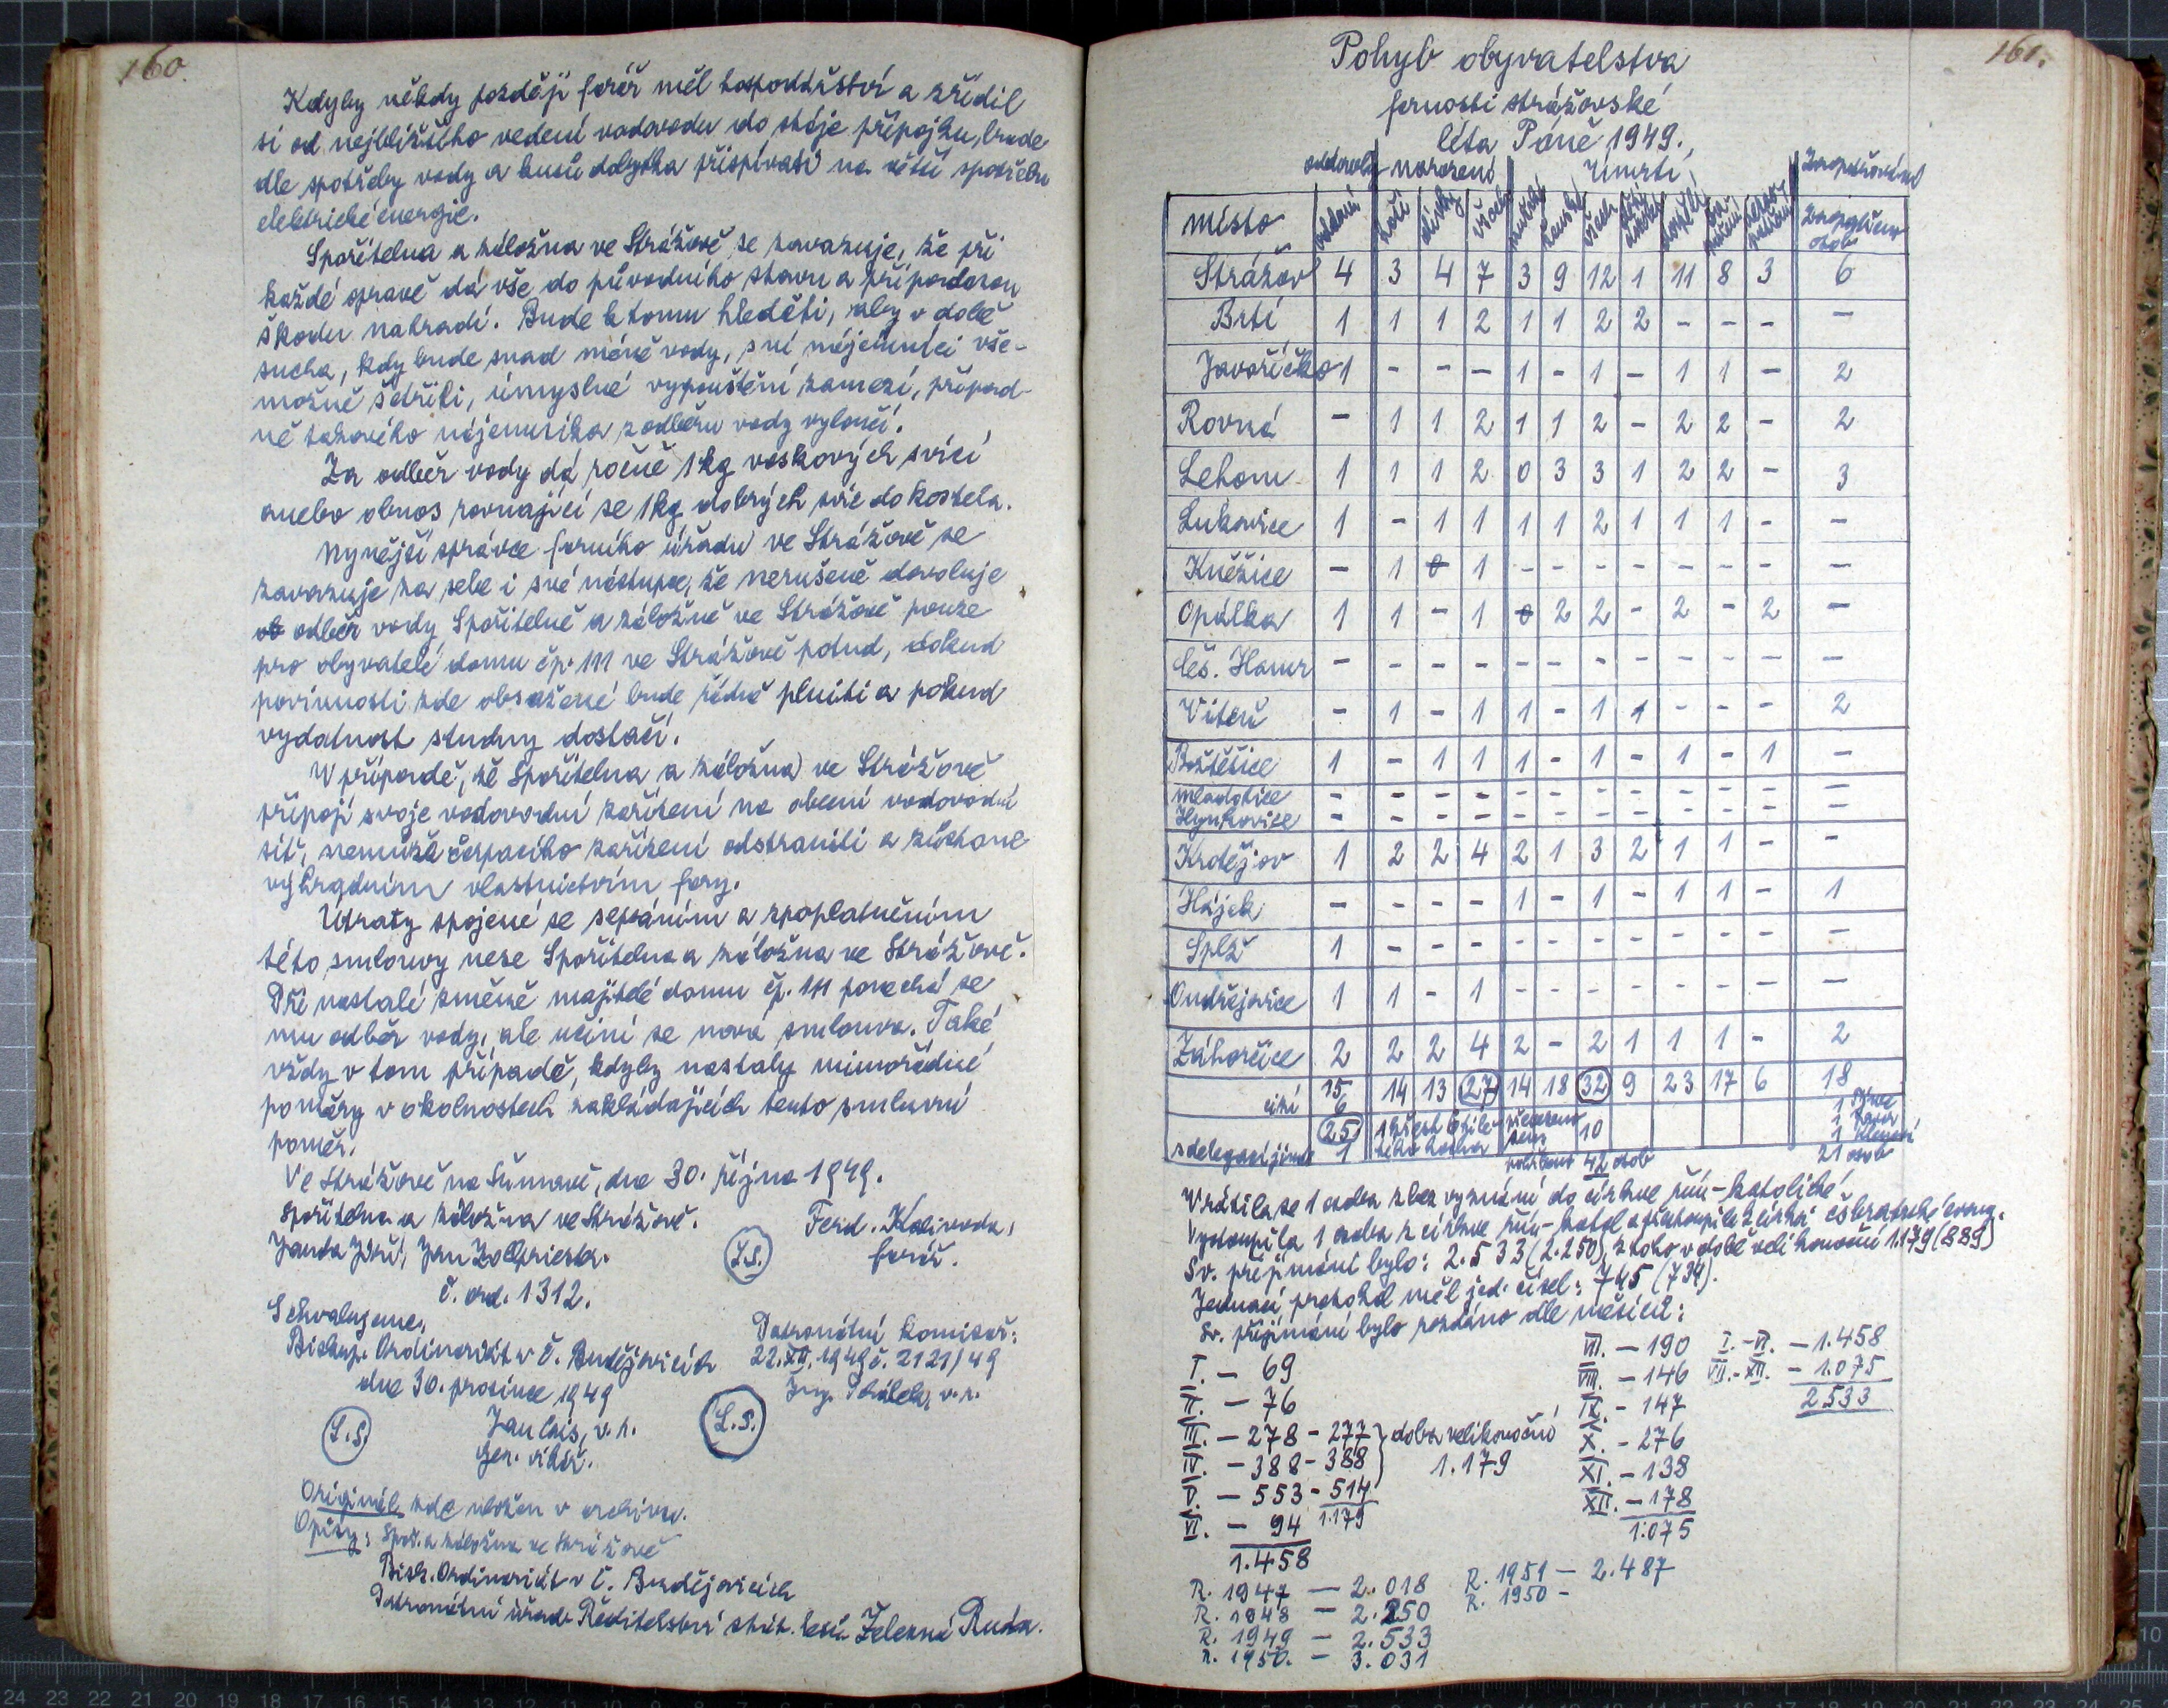 160.
Kdyby někdy později farář měl hospodářství a zřídil
si od nejbližšího vedení vodovodu do stáje přípojku, bude
dle spotřeby vody a kusů dobytka přispívati na větší spotřebu
elektrické energie.
Spořitelna a záložna ve Strážově se zavazuje, že při
každé opravě dá vše do původního stavu a případnou
škodu nahradí. Bude k tomu hleděti, aby v době
sucha, kdy bude snad méně vody, její nájemníci vše-
možně šetřili, úmyslné vypouštění zamezí, případ-
ně takového nájemníka z odběru vody vyloučí.
Za odběr vody dá ročně 1 kg voskových svící
anebo obnos rovnající se 1 kg dobrých svíc do kostela.
Nynější správce farního úřadu ve Strážově se
zavazuje za sebe i své nástupce, že nerušeně dovoluje
odběr vody Spořitelně a záložně ve Strážově pouze
pro obyvatele domu čp. 111 ve Strážově potud, dokud
povinnosti zde obsažené bude řádně plniti a pokud
vydatnost studny dostačí.
V případě, že Spořitelna a záložna ve Strážově
připojí svoje vodovodní zařízení na obecní vodovodní
síť, nemůže čerpacího zařízení odstraniti a zůstane
výhradním vlastnictvím fary.
Útraty spojené se sepsáním a zpoplatněním
této smlouvy nese Spořitelna a záložna ve Strážově.
Při nastalé změně majitele domu čp. 111 ponechá se
mu odběr vody, ale učiní se nová smlouva. Také
vždy v tom případě, kdyby nastaly mimořádné
poměry v okolnostech zakládajících tento smluvní
poměr.
Ve Strážově na Šumavě, dne 30. října 1949.
Spořitelna a záložna ve Strážově. Ferd. Kalivoda,
Janda Jiří, Jan L.S. farář.
č. ord. 1312.
Schvalujeme. Patronátní komisař:
Biskup. Ordinariát v Č. Budějovicích 22.XII.1949 č. 2121/49
dne 30. prosince 1949 Ing. v.r.
L.S. Jan Cais, v.r. L.S.
gen. vikář.
Originál zde uložen v archivu.
Opisy: Spoř. a záložna ve Strážově
Bisk. Ordinariát v Č. Budějovicích
Patronátní úřad Ředitelství stát. lesů Železná Ruda.
161.
Pohyb obyvatelstva
farnosti strážovské
léta Páně 1949.
oddavky narození Úmrtí Zaopatřování
místo oddáno hoši dívky všech mužské ženské všech děti dospělí zaopatřeno osob
Strážov 4 3 4 7 3 9 12 1 11 8 3 6
Brtí 1 1 1 2 1 1 2 2 - - - -
Javoříčko 1 - - - 1 - 1 - 1 1 - 2
Rovná - 1 1 2 1 1 2 - 2 2 - 2
Lehom 1 1 1 2 0 3 3 1 2 2 - 3
Lukavice 1 - 1 1 1 1 2 1 1 1 - -
Kněžice - 1 0 1 - - - - - - - -
Opálka 1 1 - 1 0 2 2 - 2 - 2 -
Čes. Hamr - - - - - - - - - - - -
Viteň - 1 - 1 1 - 1 1 - - - 2
Božtěšice 1 - 1 1 1 - 1 - 1 - 1 -
Mladotice - - - - - - - - - - - -
Hynkovice - - - - - - - - - - - -
Krotějov 1 2 2 4 2 1 3 2 1 1 - -
Hájek - - - - 1 - 1 - 1 1 - 1
Splž 1 - - - - - - - - - - -
Ondřejovice 1 1 - 1 - - - - - - - -
Záhorčice 2 2 2 4 2 - 2 1 1 1 - 2
15 14 13 27 14 18 32 9 23 17 6 18
cizí 6
25 1 křest 6 převezeno sem 10
s delegací jinde 1 pohřbeno 42 osob 21 osob
Vrátila se 1 osoba z bez vyznání do církve řím-katolické
Vystoupila 1 osoba z církve řím-katol a přestoupila k církvi čsbratrské evang.
Sv. přijímání bylo: 2.533 (2.250), z toho v době velikonoční 1.179 (889)
Jednací protokol měl jed. čísel: 765 (734).
Sv. přijímání bylo podáno dle měsíců:
I. - 69
II. - 76
III. - 278 - 277 doba velikonoční
IV. - 388 - 388 1.179
V. - 553 - 514
VI. - 94 1.179
1.458
VII. - 190 I.-VI. - 1.458
VIII. - 146 VII.-XII. - 1.075
IX. - 147 2.533
X. - 276
XI. - 138
XII. - 178
1.075
R. 1947 - 2.018 R. 1951 - 2.487
R. 1948 - 2.250 R. 1950 -
R. 1949 - 2.533
R. 1950. - 3.031